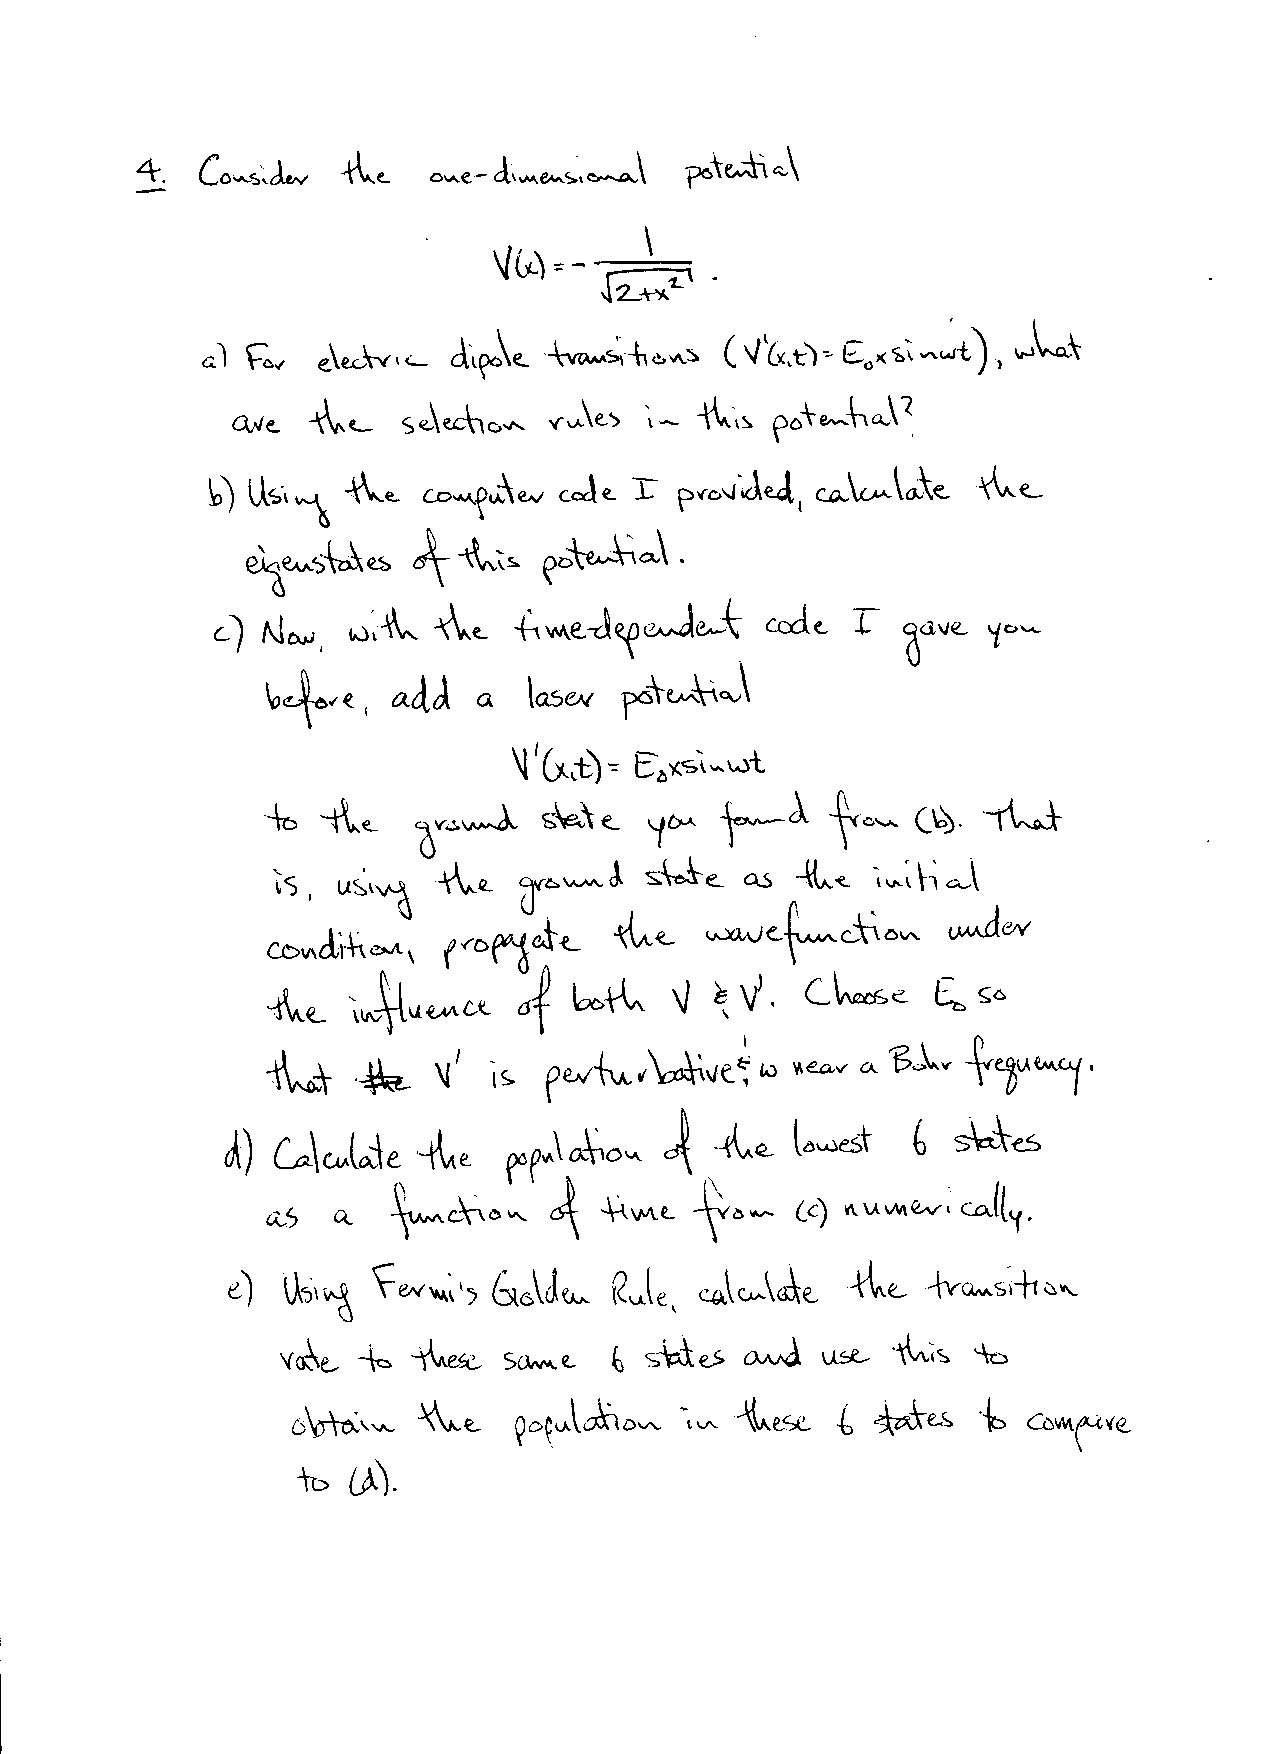 4. Consider the one-dimensional potential
V(x) = - 1/√(2+x²) .
a) For electric dipole transitions (V'(x,t) = E₀x sin ωt), what
are the selection rules in this potential?
b) Using the computer code I provided, calculate the
eigenstates of this potential.
c) Now, with the time-dependent code I gave you
before, add a laser potential
V'(x,t) = E₀x sin ωt
to the ground state you found from (b). That
is, using the ground state as the initial
condition, propagate the wavefunction under
the influence of both V & V'. Choose E₀ so
that V' is perturbative & ω near a Bohr frequency.
d) Calculate the population of the lowest 6 states
as a function of time from (c) numerically.
e) Using Fermi's Golden Rule, calculate the transition
rate to these same 6 states and use this to
obtain the population in these 6 states to compare
to (d).